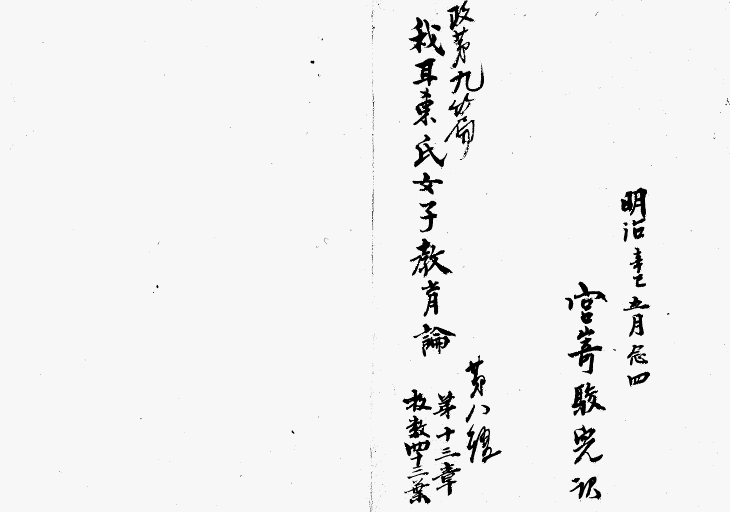 明治辛巳五月念四
宮嵜駿児訳
政第九篇
我耳東氏女子教育論
第八號
第十三章
枚数四十三葉